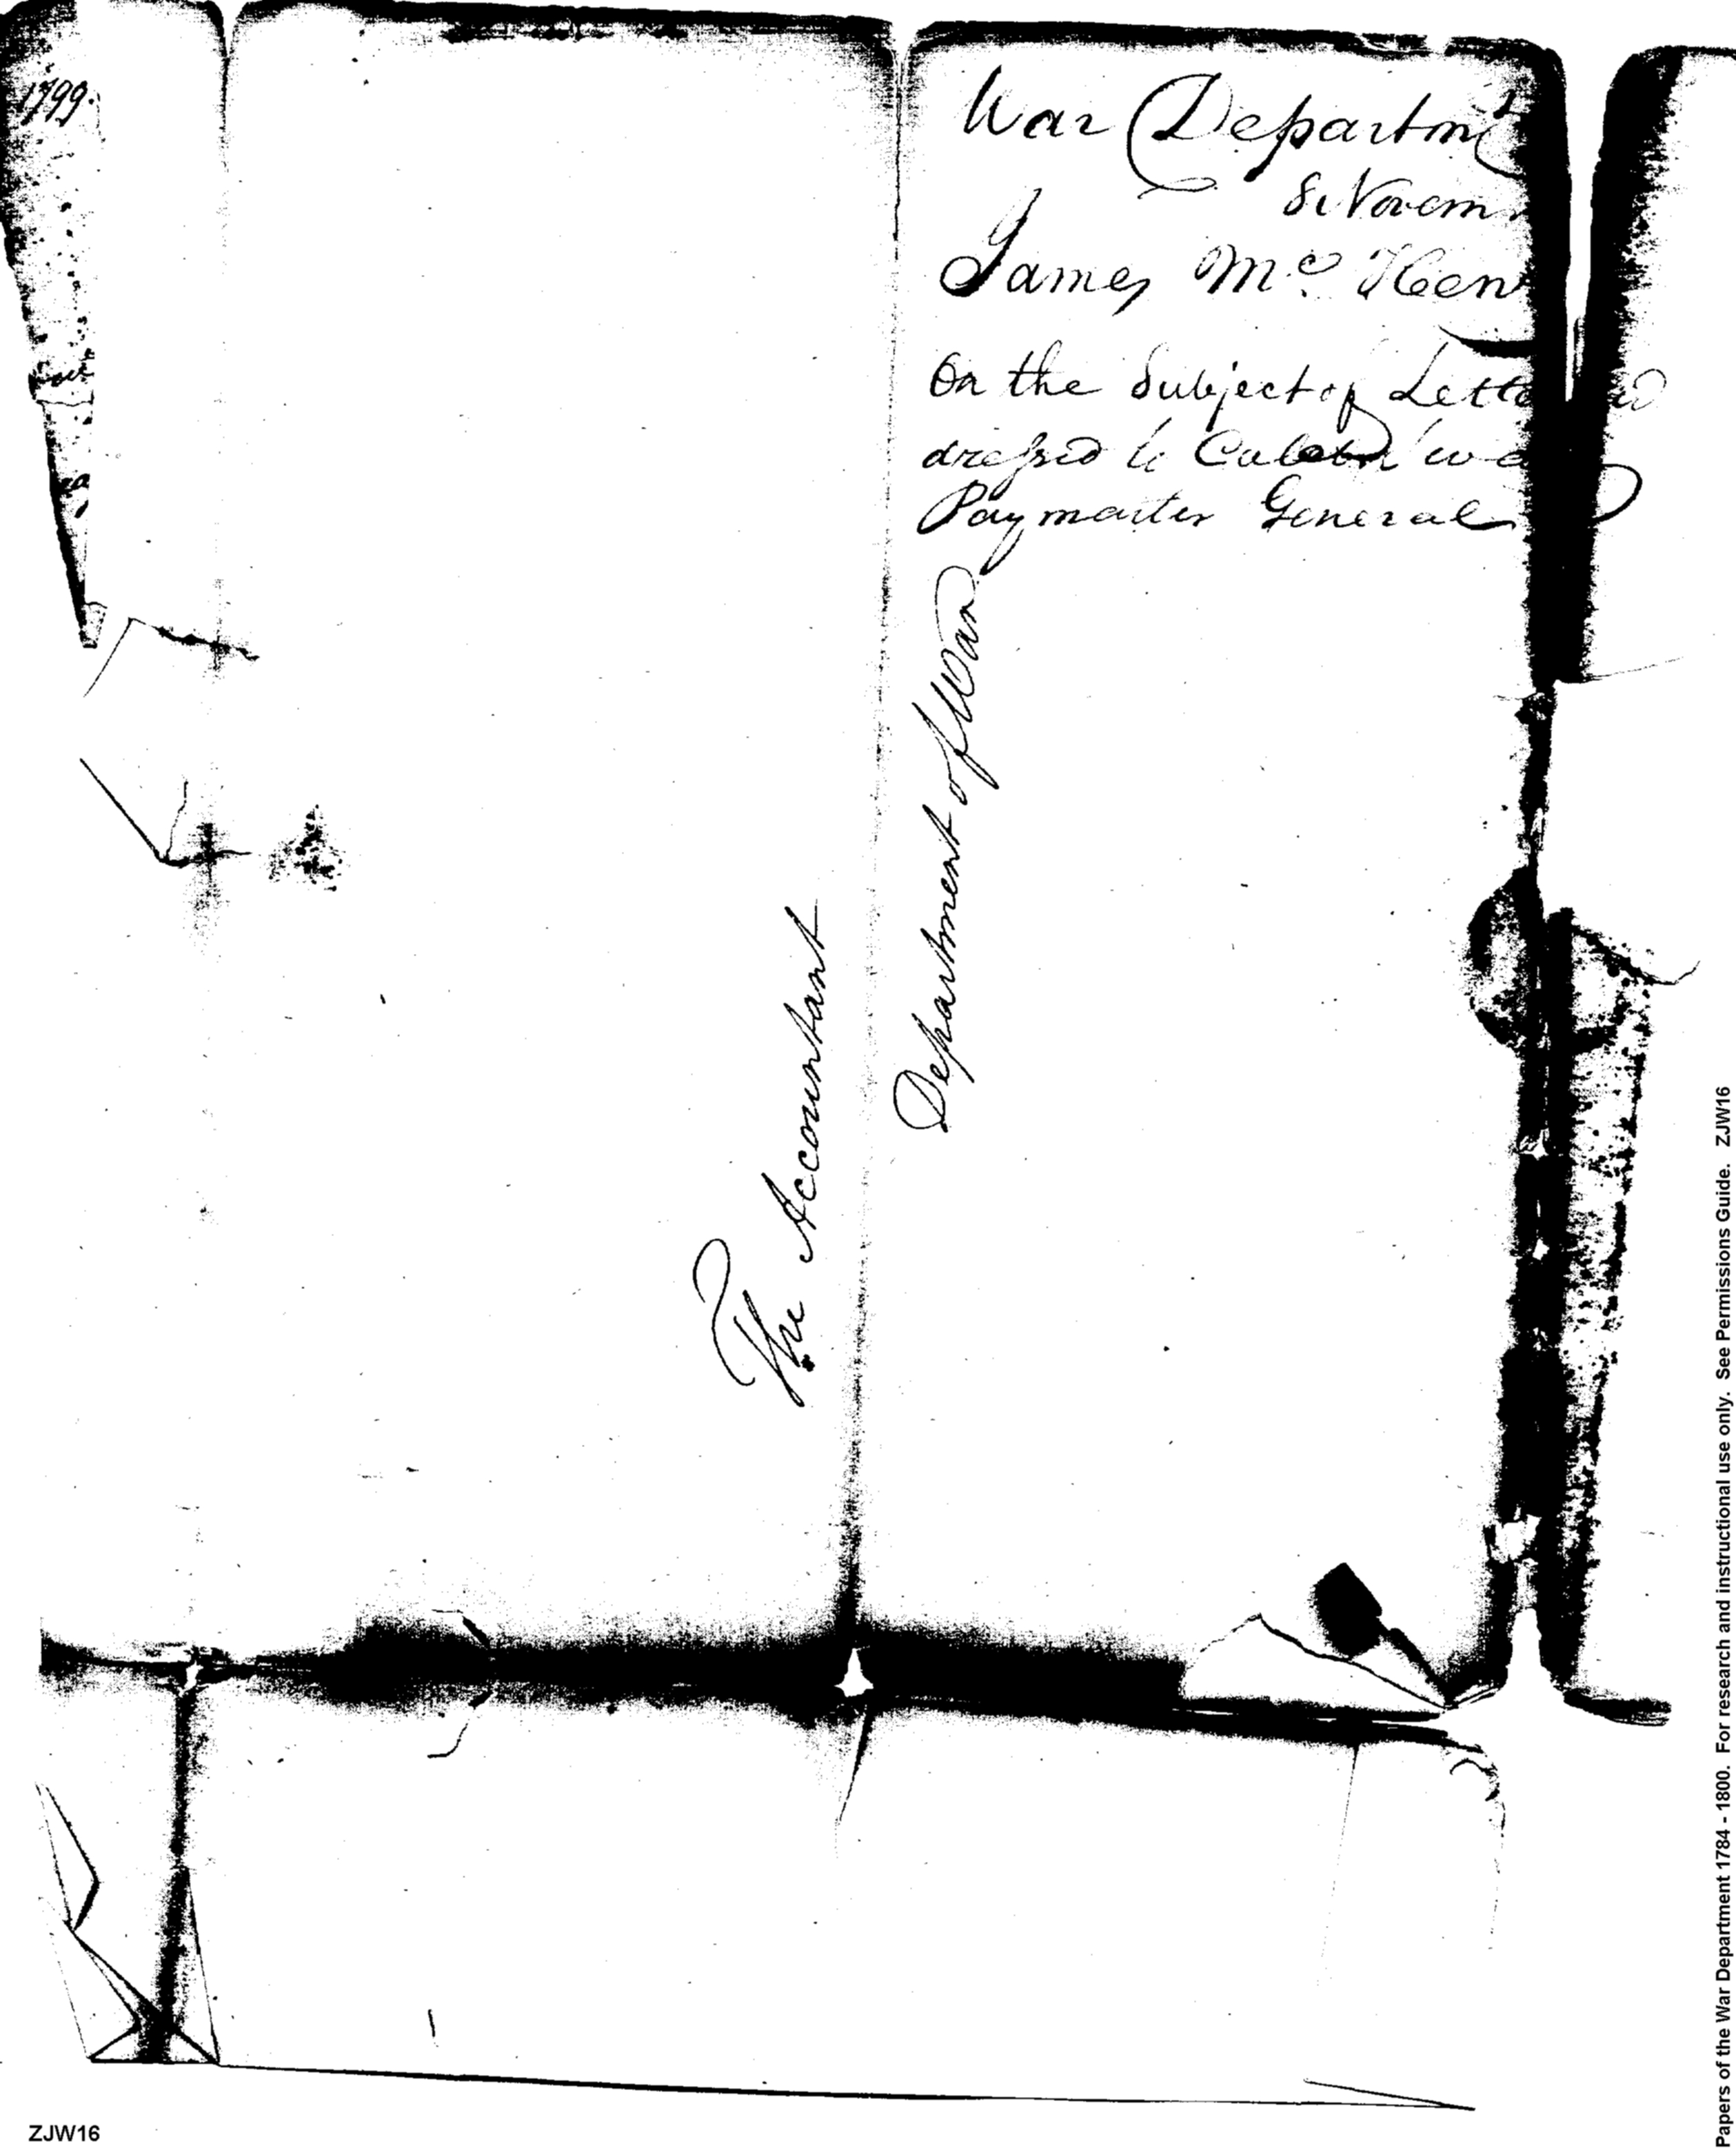 1799.
War Departmt
8 Novem
James Mc Hen
On the Subject of Lette ad
dressed to Caleb
Paymaster General
The Accountant
Department of War
Papers of the War Department 1784 - 1800. For research and instructional use only. See Permissions Guide. ZJW16
ZJW16